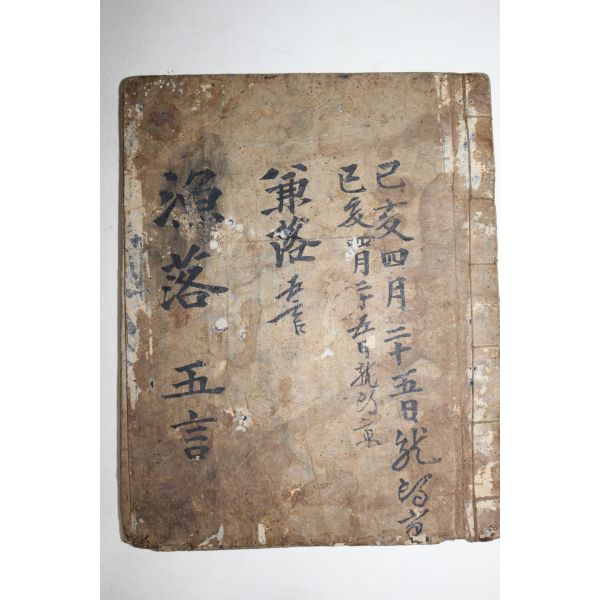 己亥四月二十五日
己亥四月二十五日
兼落 五言
漁落 五言